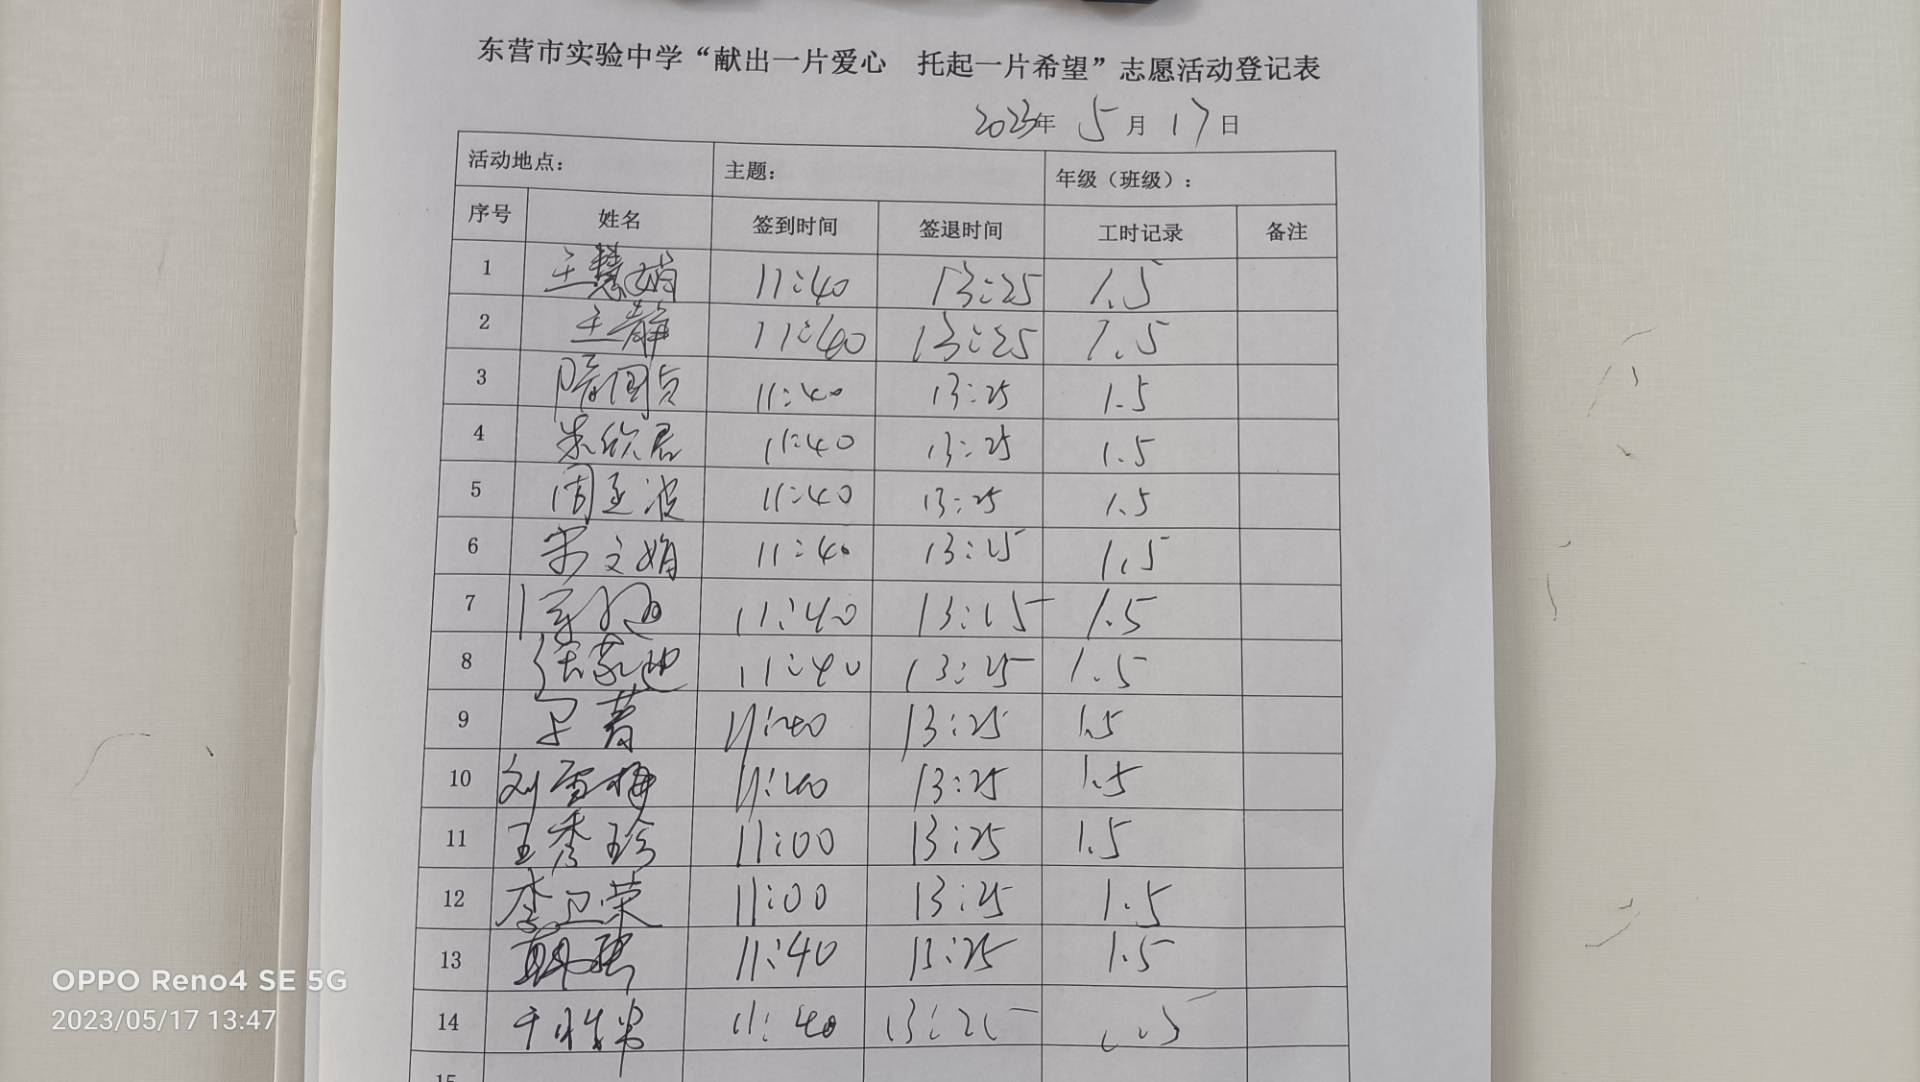 东营市实验中学“献出一片爱心 托起一片希望”志愿活动登记表
2023年 5月17日
活动地点: 主题: 年级（班级）:
序号 姓名 签到时间 签退时间 工时记录 备注
1 王慧娟 11:40 13:25 1.5
2 王静 11:40 13:25 1.5
3 11:40 13:25 1.5
4 朱欣君 11:40 13:25 1.5
5 周玉波 11:40 13:25 1.5
6 宋文娟 11:40 13:25 1.5
7 11:40 13:25 1.5
8 11:40 13:25 1.5
9 11:40 13:25 1.5
10 刘雪梅 11:40 13:25 1.5
11 王秀珍 11:00 13:25 1.5
12 李卫荣 11:00 13:25 1.5
13 11:40 13:25 1.5
14 11:40 13:25 1.5
15
OPPO Reno4 SE 5G
2023/05/17 13:47